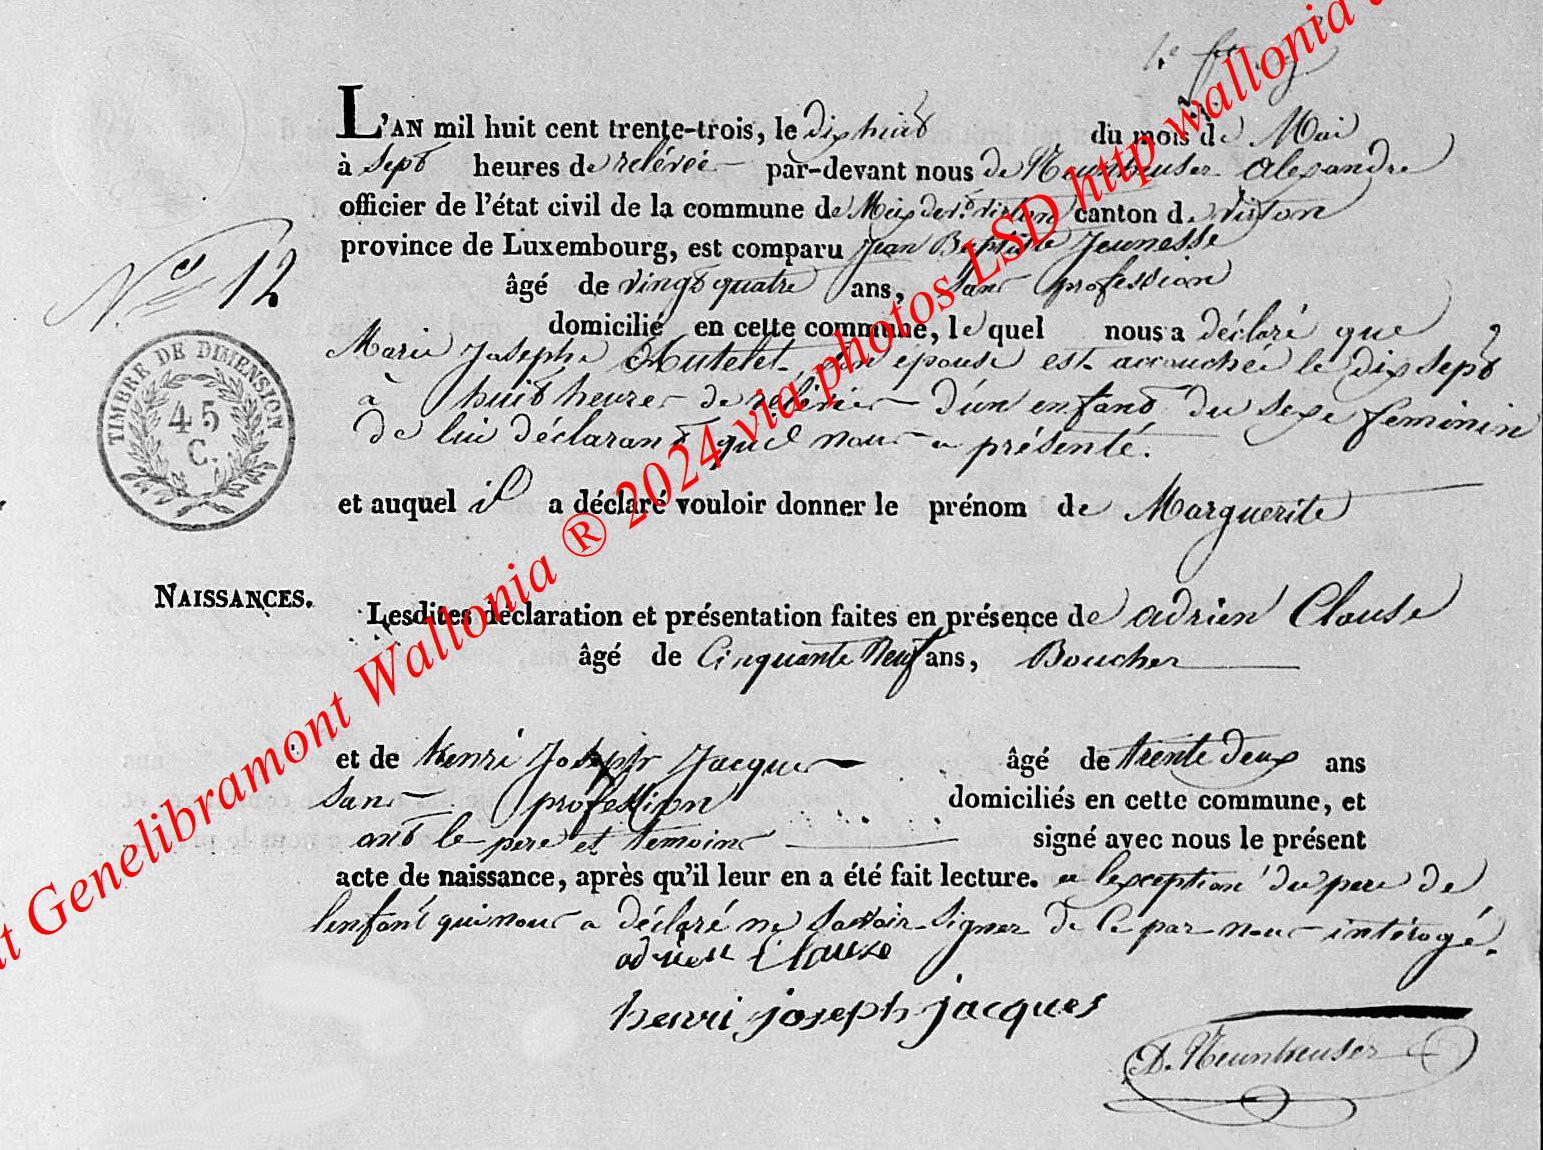 L'AN mil huit cent trente-trois, le dix huit du mois de Mai
à sept heures de relévée par-devant nous de Neunheuser alexandre
officier de l'état civil de la commune de Meix devt. virton canton de virton
province de Luxembourg, est comparu Jean Baptiste Jeunesse
N° 12
âgé de vingt quatre ans, sans profession
domicilié en cette commune, le quel nous a déclaré que
Marie Josephe Hutelet, son epouse est accouchée le dix sept
à huit heures de relévée d'un enfant du sexe feminin
de lui déclarant qu'il nous a présenté.
TIMBRE DE DIMENSION
45
C.
et auquel il a déclaré vouloir donner le prénom de Marguerite
NAISSANCES.
Lesdites déclaration et présentation faites en présence de adrien Clause
âgé de Cinquante Neuf ans, Boucher
et de henri Joseph Jacques âgé de trente deux ans
sans profession domiciliés en cette commune, et
ont le pere et temoins signé avec nous le présent
acte de naissance, après qu'il leur en a été fait lecture. a l'exception du pere de
l'enfant qui nous a déclaré ne savoir signer de ce par nous intérogé.
adrien Clause
henri joseph jacques
D. Neunheuser
Genelibramont Wallonia ® 2024 via photos LSD http wallonia